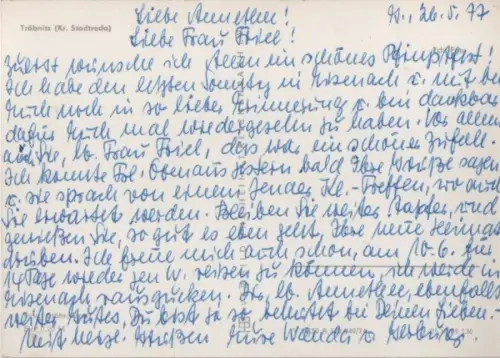 Tröbnitz (Kr. Stadtroda)
26.5.77
Liebe Annethen!
Liebe Frau Friel!
Zuerst wünsche ich Ihnen ein schönes Pfingstfest!
Ich habe den letzten Sonntag in Eisenach u. mit
Euch noch in so lieber Erinnerung u. bin dankbar
dafür Euch mal wiedergesehn zu haben. Vor allem
auch Sie, lb. Frau Friel, das war ein schöner Zufall.
Ich konnte Frl. gestern bald Ihre Grüße sagen
u. sie sprach von einem Jenaer Kl.-Treffen, wo auch
Sie erwartet werden. Bleiben Sie weiter tapfer, und
genießen Sie, so gut es eben geht, Ihre neue Heimat
drüben. Ich freue mich auch schon, am 10.6. für
14 Tage wieder gen W. reisen zu können, ich werde in
Eisenach rausgucken. Dir, lb. Annethen, ebenfalls
weiter Gutes, Du bist ja so behütet bei Deinen Lieben.
Mit herzl. Grüßen Eure Wanda u.